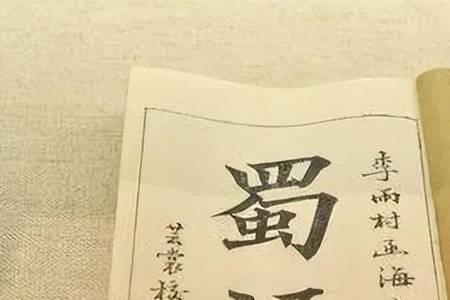 李雨村函海
蜀
芸裳校